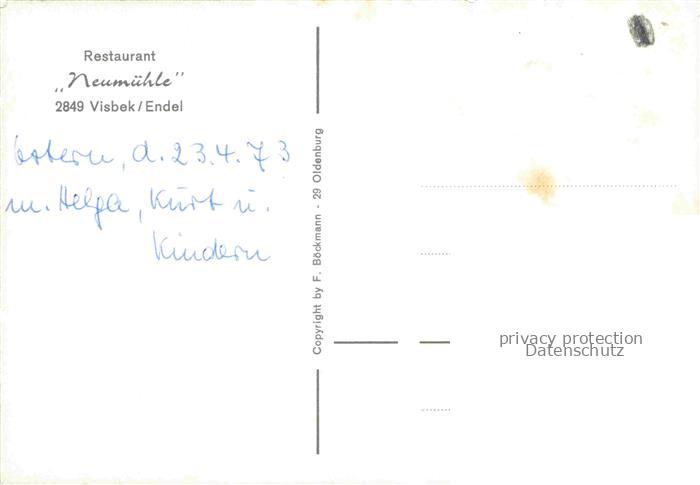 Restaurant
„Neumühle“
2849 Visbek/Endel
Ostern, d. 23.4.73
m. Helga, Kurt u.
Kindern
Copyright by F. Böckmann - 29 Oldenburg
privacy protection
Datenschutz